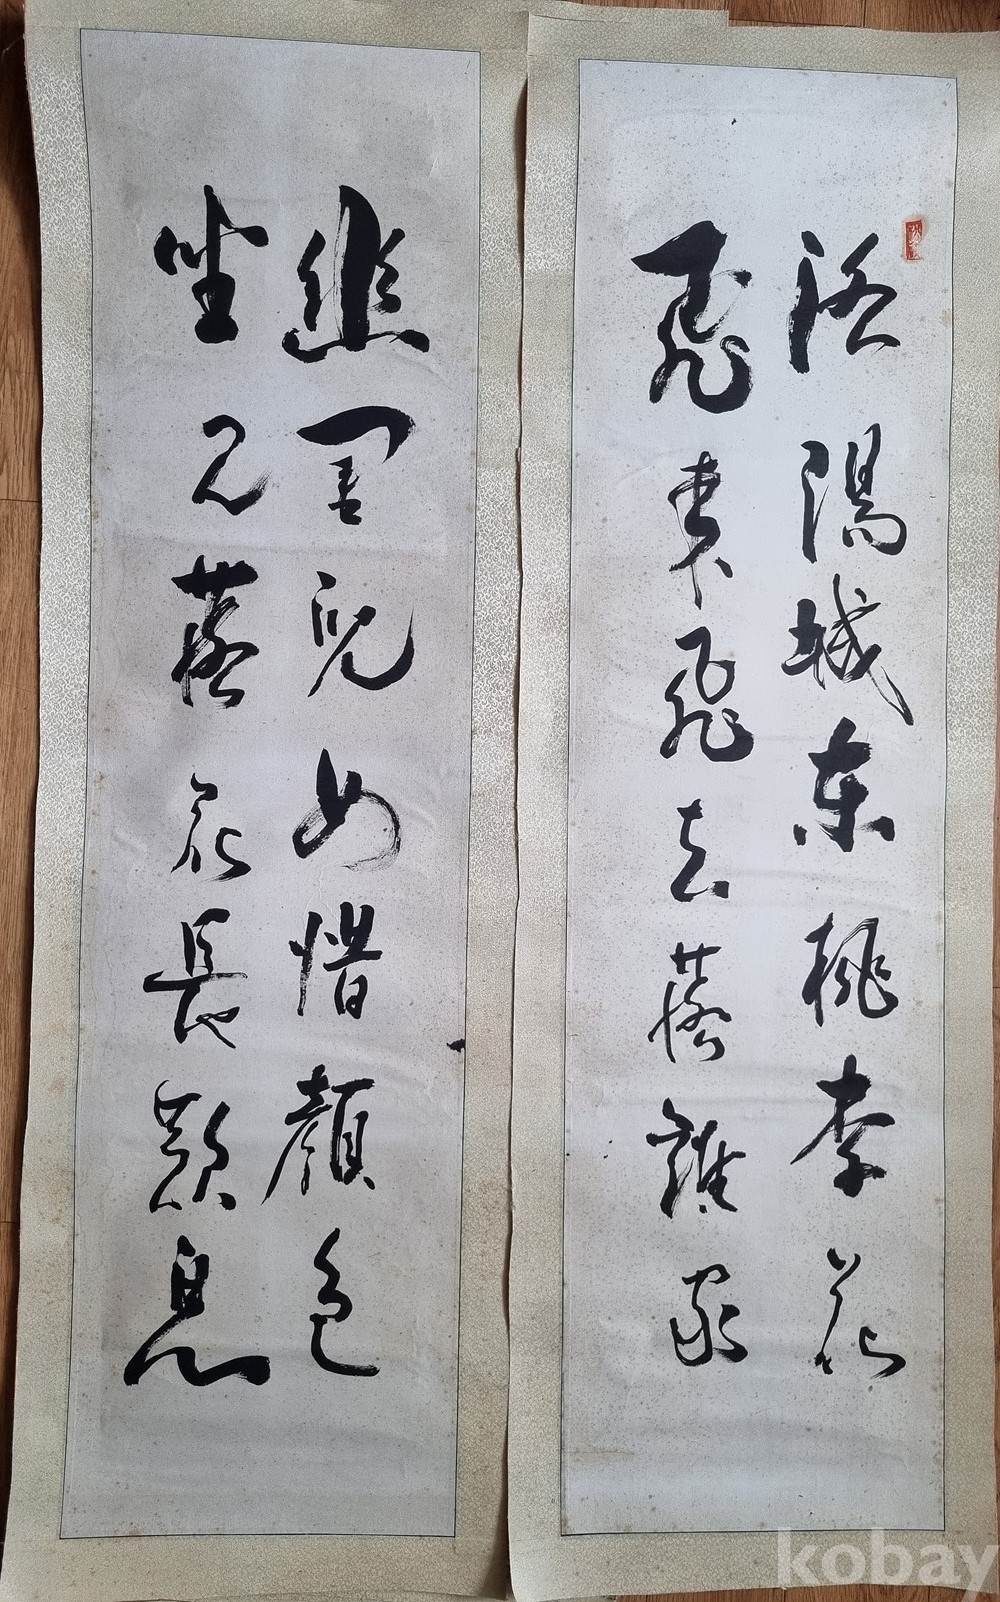 洛陽城東桃李花
飛來飛去落誰家
幽閨兒女惜顔色
坐見落花長歎息
kobay